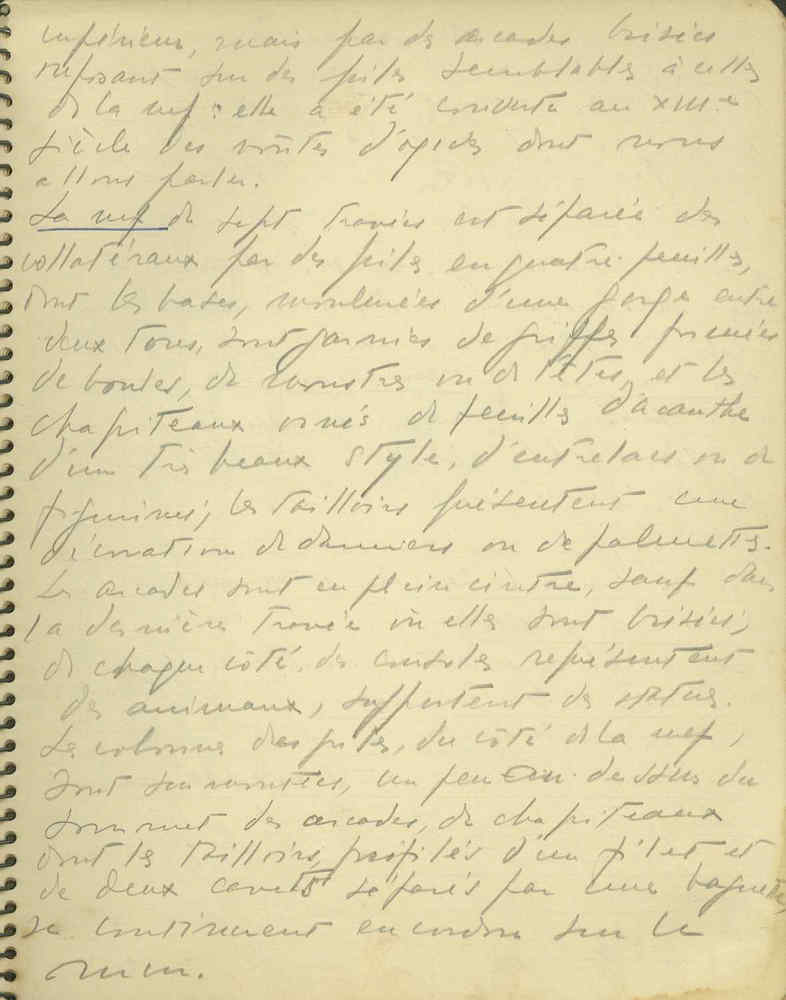 inférieur, mais par des arcades brisées
reposant sur des piles semblables à celles
de la nef : elle a été couverte au XIIIe
siècle des voûtes d'ogives dont nous
allons parler.
La nef de sept travées est séparée des
collatéraux par des piles en quatre-feuilles,
dont les bases, moulurées d'une gorge entre
deux tores, sont garnies de griffes formées
de boules, de monstres ou de têtes, et les
chapiteaux ornés de feuilles d'acanthe
d'un très beaux style, d'entrelacs ou de
figurines ; les tailloirs présentent une
décoration de damiers ou de palmettes.
Les arcades sont en plein cintre, sauf dans
la dernière travée où elles sont brisées ;
de chaque côté, des consoles représentent
des animaux, supportent des statues.
Les colonnes des piles, du côté de la nef,
sont surmontées, un peu au-dessus du
sommet des arcades, de chapiteaux
dont les tailloirs, profilés d'un filet et
de deux cavets séparés par une baguette,
se continuent en cordon sur le
mur.